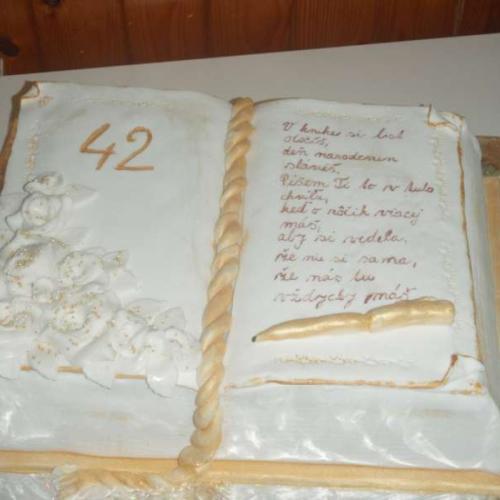 42
V knihe si list
otočíš,
deň narodenin
slávíš,
Píšem Ti to v tuto
chvíľu,
keď o rôčik viacej
máš,
aby si vedela,
že nie si sama,
že nás tu
vždycky máš